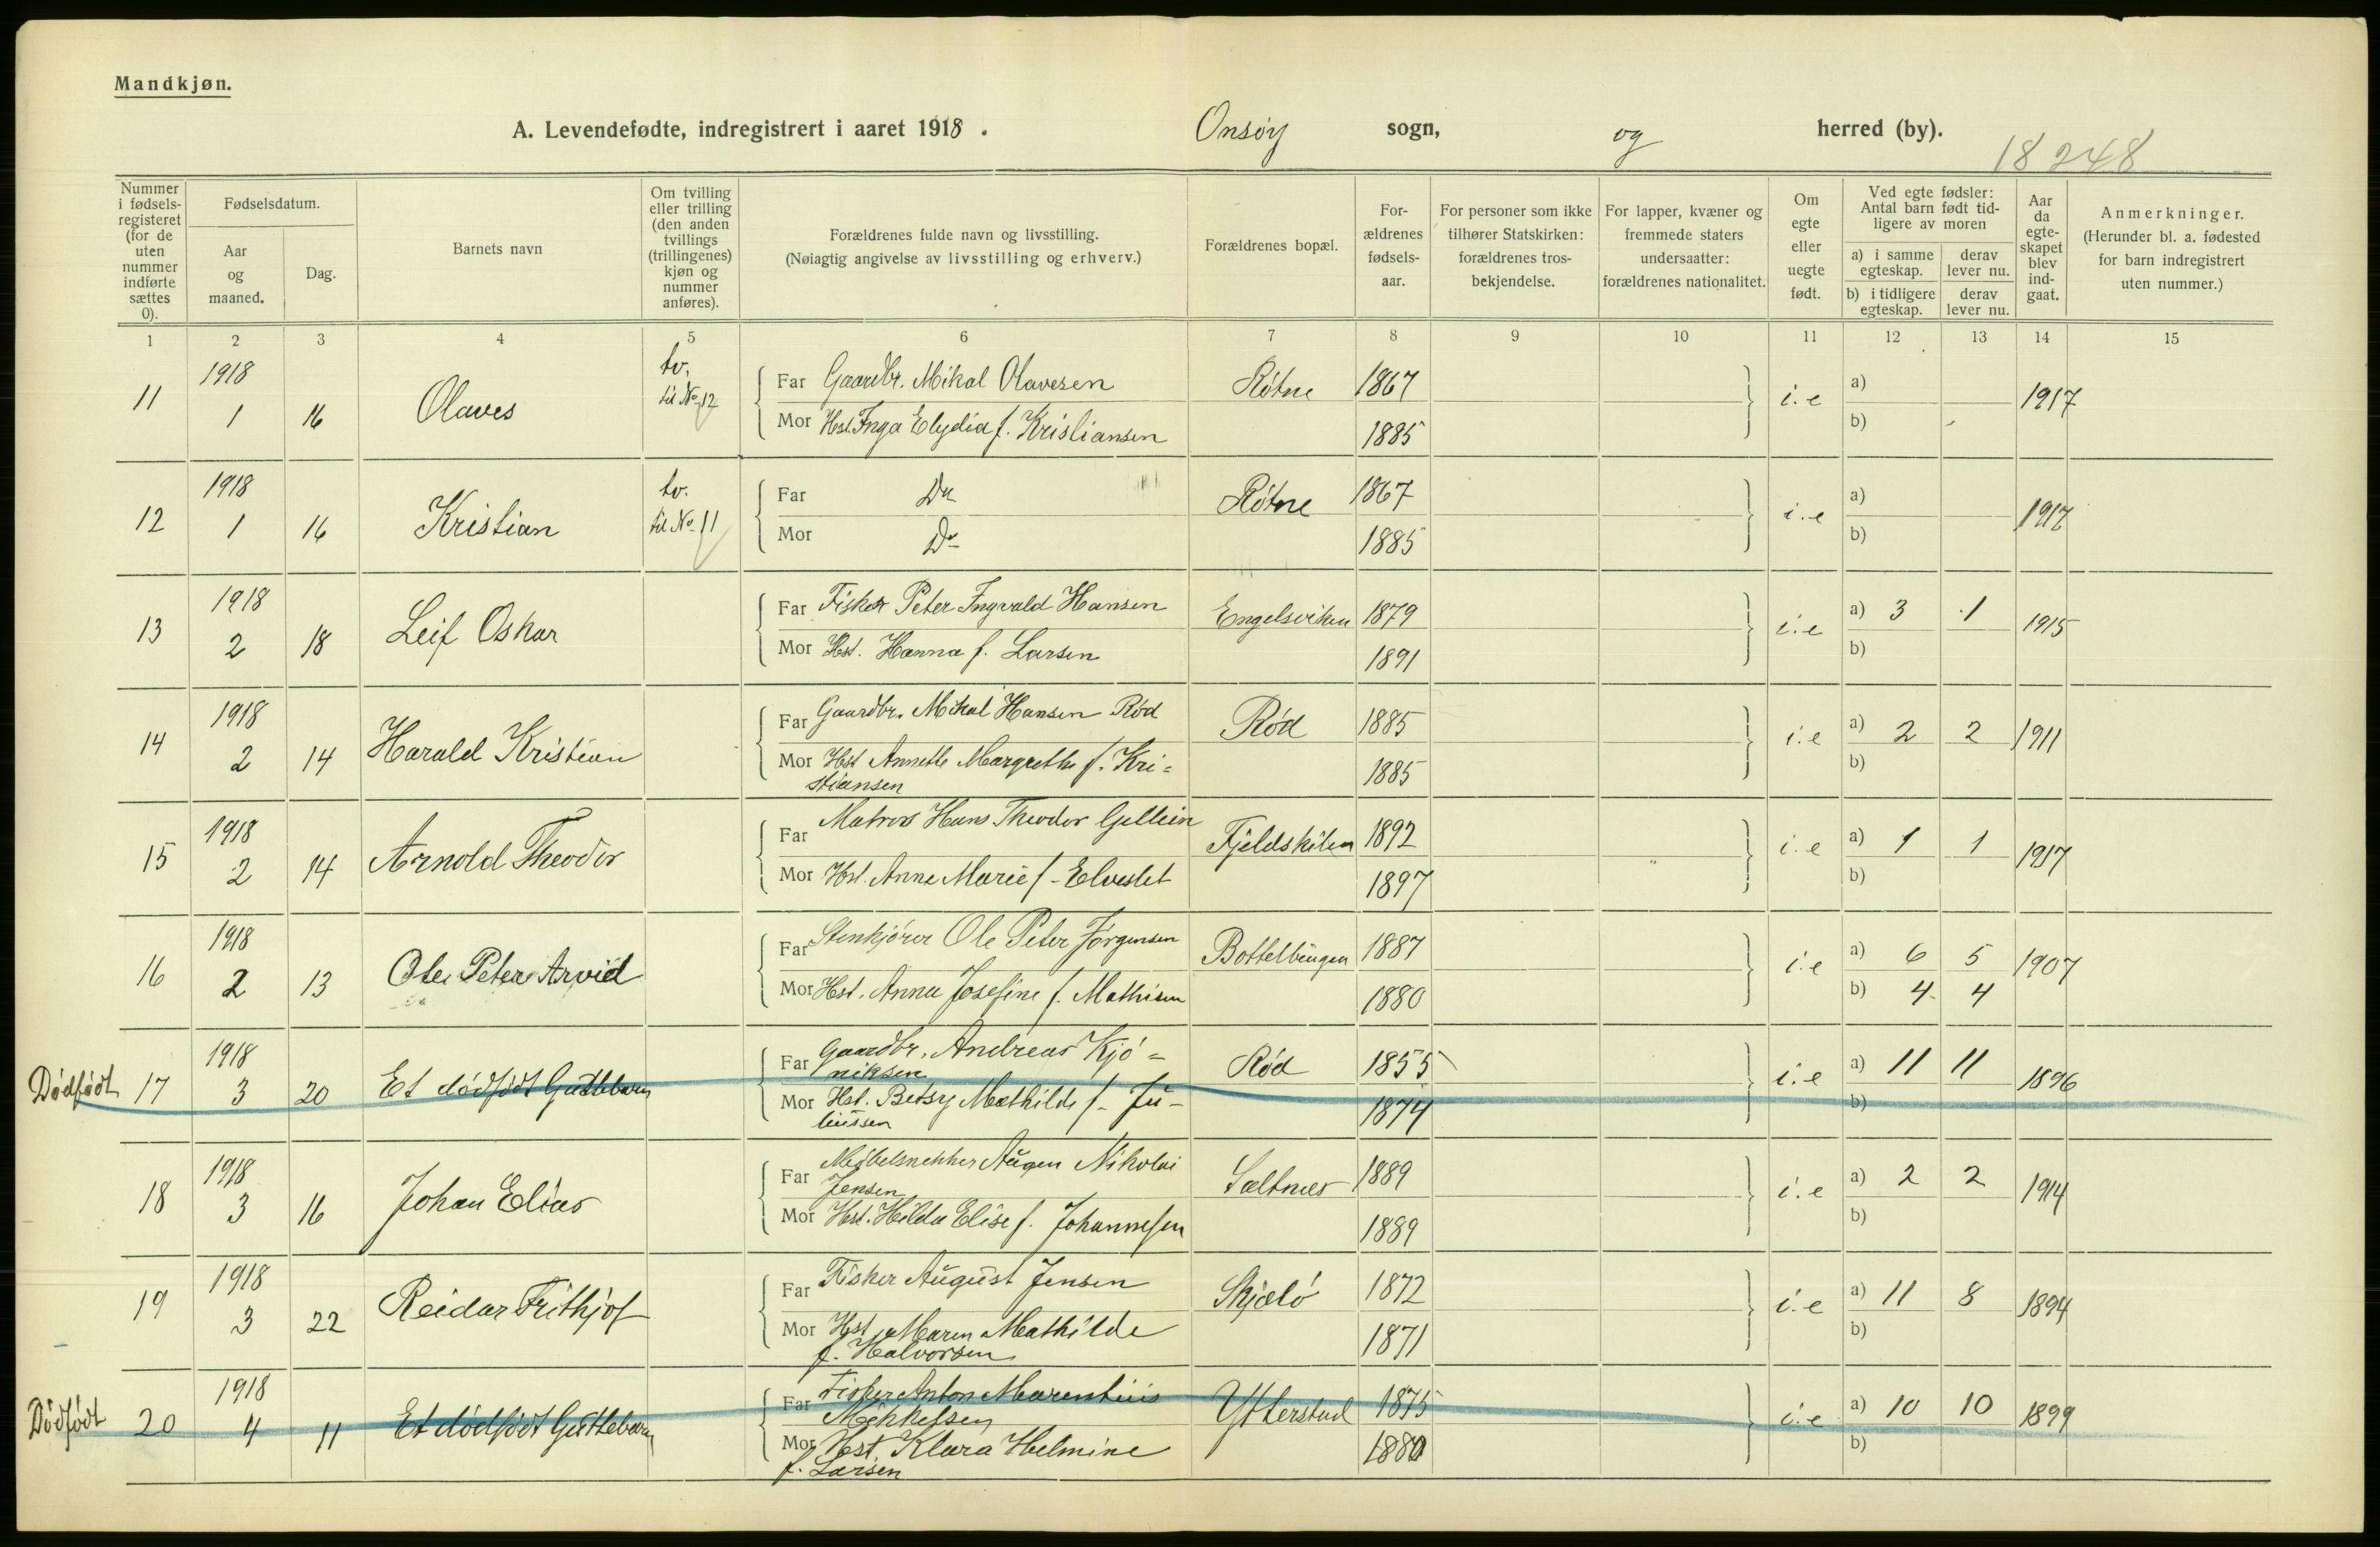 Mandkjøn.
A. Levendefødte, indregistrert i aaret 1918. Onsøy sogn, og herred (by).
18248
Nummer i fødsels-registeret (for de uten nummer indførte sættes 0).
Fødselsdatum.
Aar og maaned.
Dag.
Barnets navn
Om tvilling eller trilling (den anden tvillings (trillingenes) kjøn og nummer anføres).
Forældrenes fulde navn og livsstilling.
(Nøiagtig angivelse av livsstilling og erhverv.)
Forældrenes bopæl.
For-ældrenes fødsels-aar.
For personer som ikke tilhører Statskirken: forældrenes tros-bekjendelse.
For lapper, kvæner og fremmede staters undersaatter: forældrenes nationalitet.
Om egte eller uegte født.
Ved egte fødsler: Antal barn født tid-ligere av moren
a) i samme egteskap. derav lever nu.
b) i tidligere egteskap. derav lever nu.
Aar da egte-skapet blev ind-gaat.
Anmerkninger.
(Herunder bl. a. fødested for barn indregistrert uten nummer.)
1 2 3 4 5 6 7 8 9 10 11 12 13 14 15
11 1918 1 16 Olaves tv. til No 12 Far Gaardbr. Mikal Olavesen Røtne 1867 i.e a) 1917
Mor Hst. Inga Elydia f. Kristiansen 1885 b)
12 1918 1 16 Kristian tv. til No 11 Far Do Røtne 1867 i.e a) 1917
Mor Do 1885 b)
13 1918 2 18 Leif Oskar Far Fisker Peter Ingvald Hansen Engelsviken 1879 i.e a) 3 1 1915
Mor Hst. Hanna f. Larsen 1891 b)
14 1918 2 14 Harald Kristian Far Gaardbr. Mikal Hansen Rød Rød 1885 i.e a) 2 2 1911
Mor Hst Annette Margrethe f. Kri=
stiansen 1885 b)
15 1918 2 14 Arnold Theodor Far Matros Hans Theodor Gellein Fjeldskilen 1892 i.e a) 1 1 1917
Mor Hst. Anna Marie f. 1897 b)
16 1918 2 13 Ole Peter Arvid Far Stenkjører Ole Peter Jørgensen 1887 i.e a) 6 5 1907
Mor Hst. Anna Josefine f. Mathisen 1880 b) 4 4
Dødfødt 17 1918 3 20 Et dødfødt Guttebarn Far Gaardbr. Andreas Kjø=
niksen Rød 1855 i.e a) 11 11 1896
Mor Hst. Betsy Mathilde f. Ju-
liussen 1874 b)
18 1918 3 16 Johan Elias Far Møbelsnekker Augen Nikolai
Jensen Saltnes 1889 i.e a) 2 2 1914
Mor Hst. Hilda Elise f. Johannesen 1889 b)
19 1918 3 22 Reidar Frithjof Far Fisker August Jensen Skjælø 1872 i.e a) 11 8 1894
Mor Hst. Maren Mathilde
f. Halvorsen 1871 b)
Dødfødt 20 1918 4 11 Et dødfødt Guttebarn Far Fisker Anton Marentius
Mikkelsen 1875 i.e a) 10 10 1899
Mor Hst. Klara Helmine
f. Larsen 1880 b)